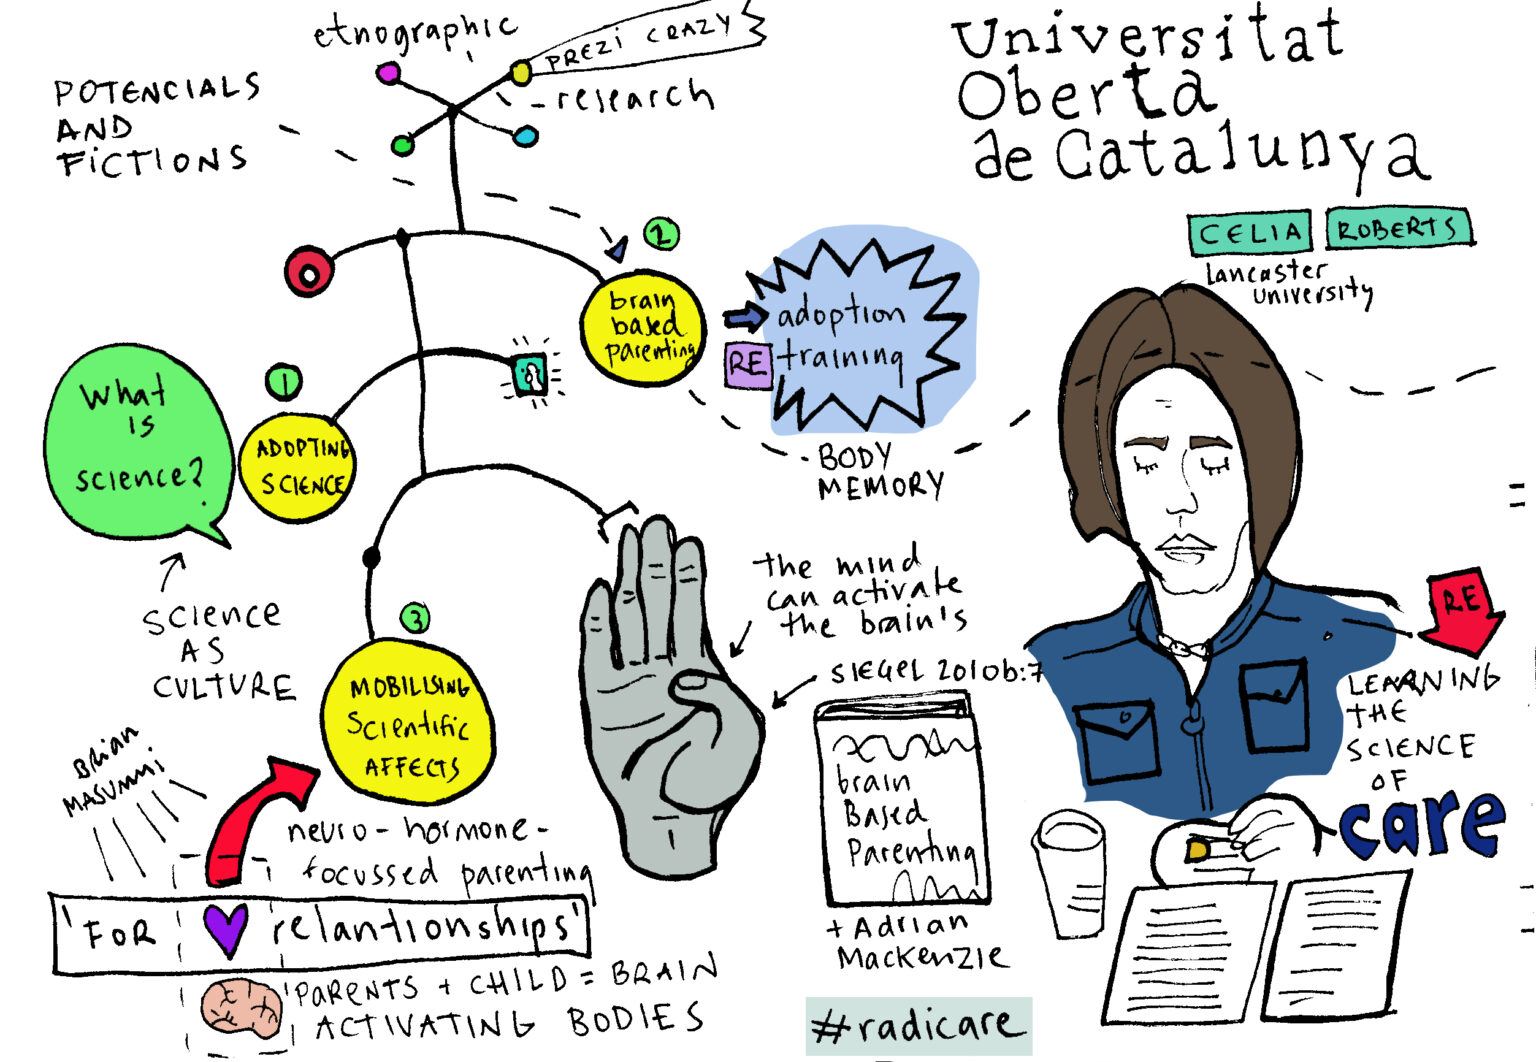 etnographic
PREZI CRAZY
- research
POTENCIALS
AND
FICTIONS
Universitat
Oberta
de Catalunya
CELIA ROBERTS
Lancaster
University
2
brain
based
parenting
adoption
RE training
BODY
MEMORY
What
is
science?
1
ADOPTING
SCIENCE
SCIENCE
AS
CULTURE
3
MOBILISING
Scientific
AFFECTS
the mind
can activate
the brain's
SIEGEL 2010b:7
brain
Based
Parenting
+ Adrian
Mackenzie
#radicare
RE
LEARNING
THE
SCIENCE
OF
care
BRIAN
MASUMMI
neuro-hormone-
focussed parenting
'FOR relantionships'
PARENTS + CHILD = BRAIN
ACTIVATING BODIES